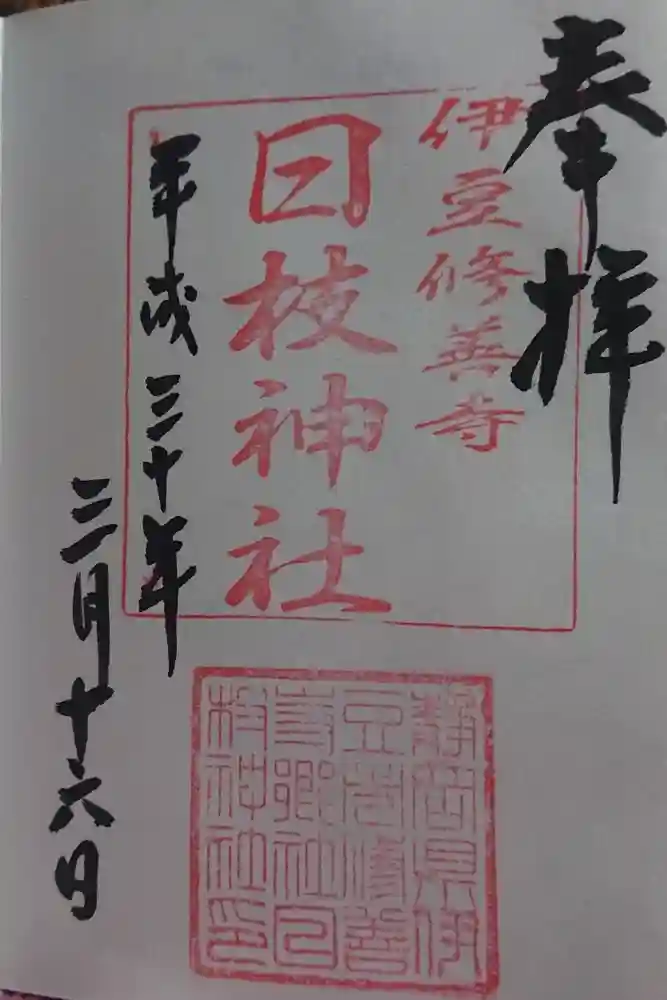 奉拝
伊豆修善寺
日枝神社
平成三十年
三月十六日
静岡県伊
豆修善
寺郷社日
枝神社印